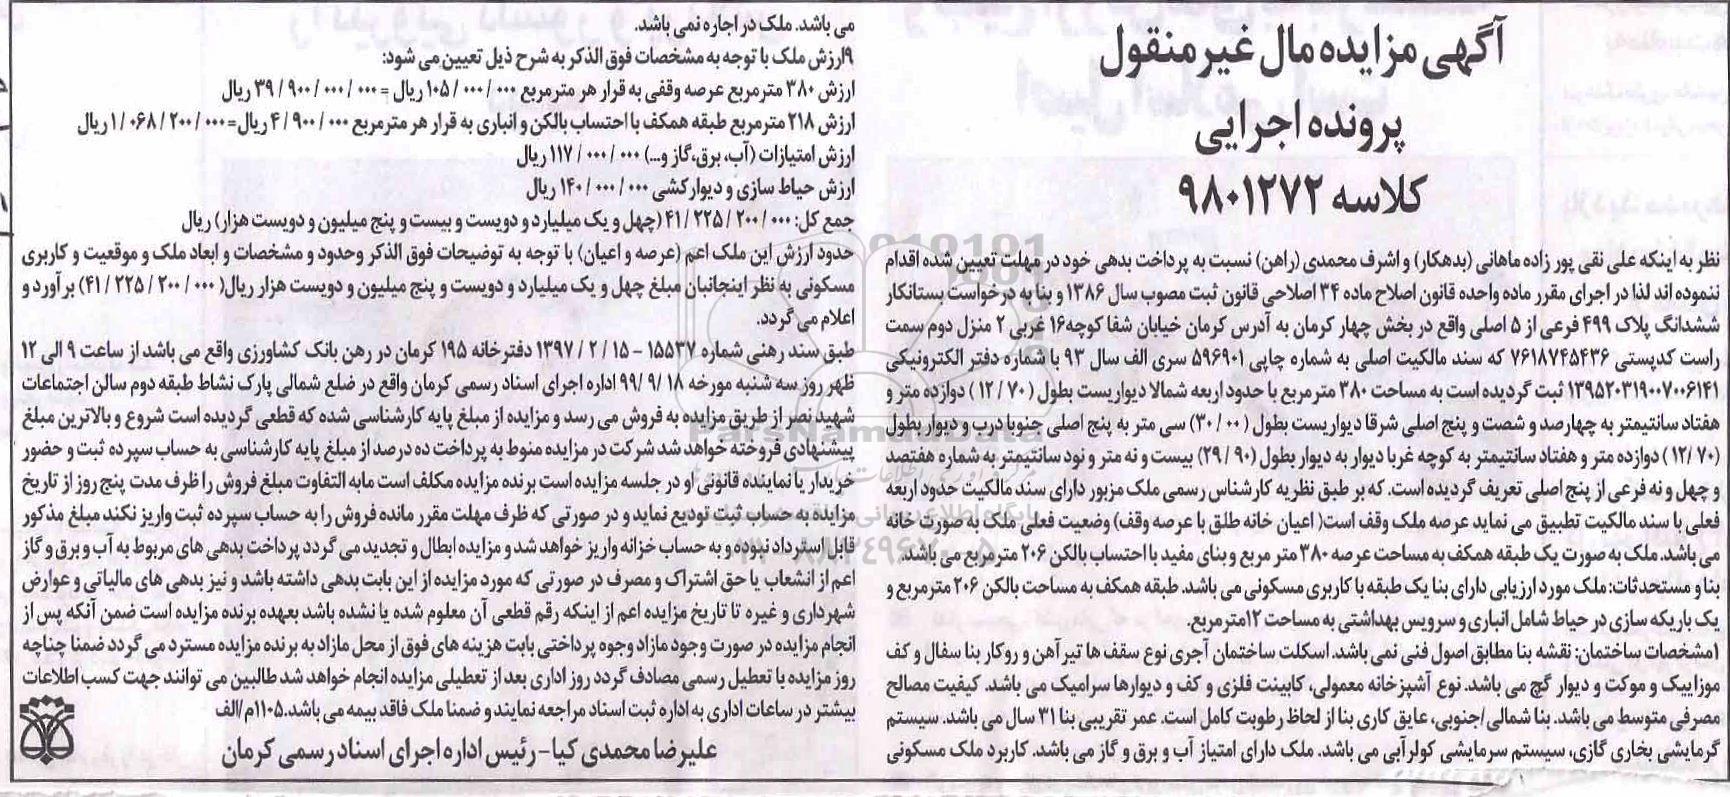 آگهی مزایده مال غیرمنقول
پرونده اجرایی
کلاسه ۹۸۰۱۲۷۲
نظر به اینکه علی نقی پور زاده ماهانی (بدهکار) و اشرف محمدی (راهن) نسبت به پرداخت بدهی خود در مهلت تعیین شده اقدام
ننموده اند لذا در اجرای مقرر ماده واحده قانون اصلاح ماده ۳۴ اصلاحی قانون ثبت مصوب سال ۱۳۸۶ و بنا به درخواست بستانکار
ششدانگ پلاک ۴۹۹ فرعی از ۵ اصلی واقع در بخش چهار کرمان به آدرس کرمان خیابان شفا کوچه۱۶ غربی ۲ منزل دوم سمت
راست کدپستی ۷۶۱۸۷۴۵۴۳۶ که سند مالکیت اصلی به شماره چاپی ۵۹۶۹۰۱ سری الف سال ۹۳ با شماره دفتر الکترونیکی
۱۳۹۵۲۰۳۱۹۰۰۷۰۰۶۱۴۱ ثبت گردیده است به مساحت ۳۸۰ مترمربع با حدود اربعه شمالا دیواریست بطول (۷۰ /۱۲ ) دوازده متر و
هفتاد سانتیمتر به چهارصد و شصت و پنج اصلی شرقا دیواریست بطول (۰۰ /۳۰) سی متر به پنج اصلی جنوبا درب و دیوار بطول
(۷۰ /۱۲ ) دوازده متر و هفتاد سانتیمتر به کوچه غربا دیوار به دیوار بطول (۹۰ /۲۹) بیست و نه متر و نود سانتیمتر به شماره هفتصد
و چهل و نه فرعی از پنج اصلی تعریف گردیده است. که بر طبق نظریه کارشناس رسمی ملک مزبور دارای سند مالکیت حدود اربعه
فعلی با سند مالکیت تطبیق می نماید عرصه ملک وقف است( اعیان خانه طلق با عرصه وقف) وضعیت فعلی ملک به صورت خانه
می باشد. ملک به صورت یک طبقه همکف به مساحت عرصه ۳۸۰ متر مربع و بنای مفید با احتساب بالکن ۲۰۶ مترمربع می باشد.
بنا و مستحدثات: ملک مورد ارزیابی دارای بنا یک طبقه با کاربری مسکونی می باشد. طبقه همکف به مساحت بالکن ۲۰۶ مترمربع و
یک باریکه سازی در حیاط شامل انباری و سرویس بهداشتی به مساحت ۱۲مترمربع.
۱مشخصات ساختمان: نقشه بنا مطابق اصول فنی نمی باشد. اسکلت ساختمان آجری نوع سقف ها تیرآهن و روکار بنا سفال و کف
موزاییک و موکت و دیوار گچ می باشد. نوع آشپزخانه معمولی، کابینت فلزی و کف و دیوارها سرامیک می باشد. کیفیت مصالح
مصرفی متوسط می باشد. بنا شمالی/جنوبی، عایق کاری بنا از لحاظ رطوبت کامل است. عمر تقریبی بنا ۳۱ سال می باشد. سیستم
گرمایشی بخاری گازی، سیستم سرمایشی کولرآبی می باشد. ملک دارای امتیاز آب و برق و گاز می باشد. کاربرد ملک مسکونی
می باشد. ملک در اجاره نمی باشد.
۹ارزش ملک با توجه به مشخصات فوق الذکر به شرح ذیل تعیین می شود:
ارزش ۳۸۰ مترمربع عرصه وقفی به قرار هر مترمربع ۰۰۰ /۰۰۰ /۱۰۵ ریال = ۰۰۰ /۰۰۰ /۹۰۰ /۳۹ ریال
ارزش ۲۱۸ مترمربع طبقه همکف با احتساب بالکن و انباری به قرار هر مترمربع ۰۰۰ /۹۰۰ /۴ ریال= ۰۰۰ /۲۰۰ /۰۶۸ /۱ ریال
ارزش امتیازات (آب، برق،گاز و...) ۰۰۰ /۰۰۰ /۱۱۷ ریال
ارزش حیاط سازی و دیوارکشی ۰۰۰ /۰۰۰ /۱۴۰ ریال
جمع کل: ۰۰۰ /۲۰۰ /۲۲۵ /۴۱ (چهل و یک میلیارد و دویست و بیست و پنج میلیون و دویست هزار) ریال
حدود ارزش این ملک اعم (عرصه و اعیان) با توجه به توضیحات فوق الذکر وحدود و مشخصات و ابعاد ملک و موقعیت و کاربری
مسکونی به نظر اینجانبان مبلغ چهل و یک میلیارد و دویست و پنج میلیون و دویست هزار ریال( ۰۰۰ /۲۰۰ /۲۲۵ /۴۱) برآورد و
اعلام می گردد.
طبق سند رهنی شماره ۱۵۵۳۷ - ۱۵ /۲ /۱۳۹۷ دفترخانه ۱۹۵ کرمان در رهن بانک کشاورزی واقع می باشد از ساعت ۹ الی ۱۲
ظهر روز سه شنبه مورخه ۱۸ /۹ /۹۹ اداره اجرای اسناد رسمی کرمان واقع در ضلع شمالی پارک نشاط طبقه دوم سالن اجتماعات
شهید نصر از طریق مزایده به فروش می رسد و مزایده از مبلغ پایه کارشناسی شده که قطعی گردیده است شروع و بالاترین مبلغ
پیشنهادی فروخته خواهد شد شرکت در مزایده منوط به پرداخت ده درصد از مبلغ پایه کارشناسی به حساب سپرده ثبت و حضور
خریدار یا نماینده قانونی او در جلسه مزایده است برنده مزایده مکلف است مابه التفاوت مبلغ فروش را ظرف مدت پنج روز از تاریخ
مزایده به حساب ثبت تودیع نماید و در صورتی که ظرف مهلت مقرر مانده فروش را به حساب سپرده ثبت واریز نکند مبلغ مذکور
قابل استرداد نبوده و به حساب خزانه واریز خواهد شد و مزایده ابطال و تجدید می گردد پرداخت بدهی های مربوط به آب و برق و گاز
اعم از انشعاب یا حق اشتراک و مصرف در صورتی که مورد مزایده از این بابت بدهی داشته باشد و نیز بدهی های مالیاتی و عوارض
شهرداری و غیره تا تاریخ مزایده اعم از اینکه رقم قطعی آن معلوم شده یا نشده باشد بعهده برنده مزایده است ضمن آنکه پس از
انجام مزایده در صورت وجود مازاد وجوه پرداختی بابت هزینه های فوق از محل مازاد به برنده مزایده مسترد می گردد ضمنا چناچه
روز مزایده با تعطیل رسمی مصادف گردد روز اداری بعد از تعطیلی مزایده انجام خواهد شد طالبین می توانند جهت کسب اطلاعات
بیشتر در ساعات اداری به اداره ثبت اسناد مراجعه نمایند و ضمنا ملک فاقد بیمه می باشد.۱۱۰۵م/الف
علیرضا محمدی کیا- رئیس اداره اجرای اسناد رسمی کرمان
ParsNamadData